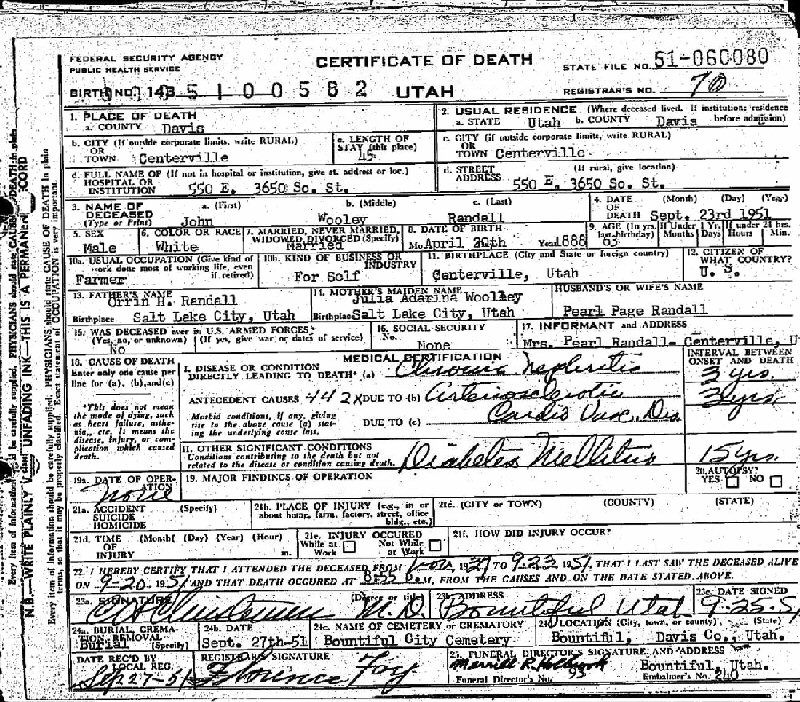 FEDERAL SECURITY AGENCY
PUBLIC HEALTH SERVICE
CERTIFICATE OF DEATH
STATE FILE NO. 51-060080
BIRTH NO. 143 5100582 UTAH
REGISTRAR'S NO. 70
1. PLACE OF DEATH
a. COUNTY Davis
2. USUAL RESIDENCE (Where deceased lived. If institution: residence before admission)
a. STATE Utah b. COUNTY Davis
b. CITY (If outside corporate limits, write RURAL) OR TOWN Centerville
c. LENGTH OF STAY (this place)
c. CITY (If outside corporate limits, write RURAL) OR TOWN Centerville
d. FULL NAME OF (If not in hospital or institution, give st. address or loc.) HOSPITAL OR INSTITUTION 550 E. 3650 So. St.
d. STREET ADDRESS (If rural, give location) 550 E. 3650 So. St.
3. NAME OF DECEASED (Type or Print)
a. (First) John
b. (Middle) Wooley
c. (Last) Randall
4. DATE OF DEATH (Month) (Day) (Year) Sept. 23rd 1951
5. SEX Male
6. COLOR OR RACE White
7. MARRIED, NEVER MARRIED, WIDOWED, DIVORCED (Specify) Married
8. DATE OF BIRTH Mo April Year 1888
9. AGE (In yrs. last birthday) 63 If Under 1 Yr. Months Days If under 24 hrs. Hours Min.
10a. USUAL OCCUPATION (Give kind of work done most of working life, even if retired) Farmer
10b. KIND OF BUSINESS OR INDUSTRY For Self
11. BIRTHPLACE (City and State or foreign country) Centerville, Utah
12. CITIZEN OF WHAT COUNTRY? U. S.
13. FATHER'S NAME Orrin H. Randall
Birthplace Salt Lake City, Utah
14. MOTHER'S MAIDEN NAME Julia Adarina Woolley
Birthplace Salt Lake City, Utah
HUSBAND'S OR WIFE'S NAME
Pearl Page Randall
15. WAS DECEASED ever in U.S. ARMED FORCES?
(Yes, no, or unknown) (If yes, give war or dates of service) No
16. SOCIAL SECURITY No. None
17. INFORMANT and ADDRESS
Mrs. Pearl Randall- Centerville, U
18. CAUSE OF DEATH
Enter only one cause per line for (a), (b), and (c)
MEDICAL CERTIFICATION
INTERVAL BETWEEN ONSET AND DEATH
I. DISEASE OR CONDITION DIRECTLY LEADING TO DEATH* (a) Chronic Nephritis 3 yrs.
*This does not mean the mode of dying, such as heart failure, asthenia, etc. It means the disease, injury, or complication which caused death.
ANTECEDENT CAUSES 442X DUE TO (b) Arteriosclerotic yrs.
Morbid conditions, if any, giving rise to the above cause (a) stating the underlying cause last.
DUE TO (c) Cardio Vasc. Dis
11. OTHER SIGNIFICANT CONDITIONS
Conditions contributing to the death but not related to the disease or condition causing death. Diabetes Mellitus 15 yrs.
19a. DATE OF OPERATION None
19. MAJOR FINDINGS OF OPERATION
20. AUTOPSY? YES NO
21a. ACCIDENT SUICIDE HOMICIDE (Specify)
21b. PLACE OF INJURY (e.g., in or about home, farm, factory, street, office bldg., etc.)
21c. (CITY OR TOWN) (COUNTY) (STATE)
21d. TIME OF INJURY (Month) (Day) (Year) (Hour) m.
21e. INJURY OCCURED While at Work Not While at Work
21f. HOW DID INJURY OCCUR?
22. I HEREBY CERTIFY THAT I ATTENDED THE DECEASED FROM TO 9-23 1951, THAT I LAST SAW THE DECEASED ALIVE
ON 9-20 1951 AND THAT DEATH OCCURED AT M., FROM THE CAUSES AND ON THE DATE STATED ABOVE.
23a. SIGNATURE (Degree or title) M.D.
23b. ADDRESS Bountiful Utah
23c. DATE SIGNED 9-25-51
24a. BURIAL, CREMATION, REMOVAL (Specify) Burial
24b. DATE Sept. 27th-51
24c. NAME OF CEMETERY or CREMATORY Bountiful City Cemetery
24d. LOCATION (City, town, or county) (State) Bountiful, Davis Co., Utah.
DATE REC'D BY LOCAL REG. Sep 27-51
REGISTRAR'S SIGNATURE Florence Foy
25. FUNERAL DIRECTOR'S SIGNATURE AND ADDRESS
Merrill R. Holbrook Bountiful, Utah.
Funeral Director's No. 93 Embalmer's No. 240
N.B.—WRITE PLAINLY UNFADING INK—THIS IS A PERMANENT RECORD